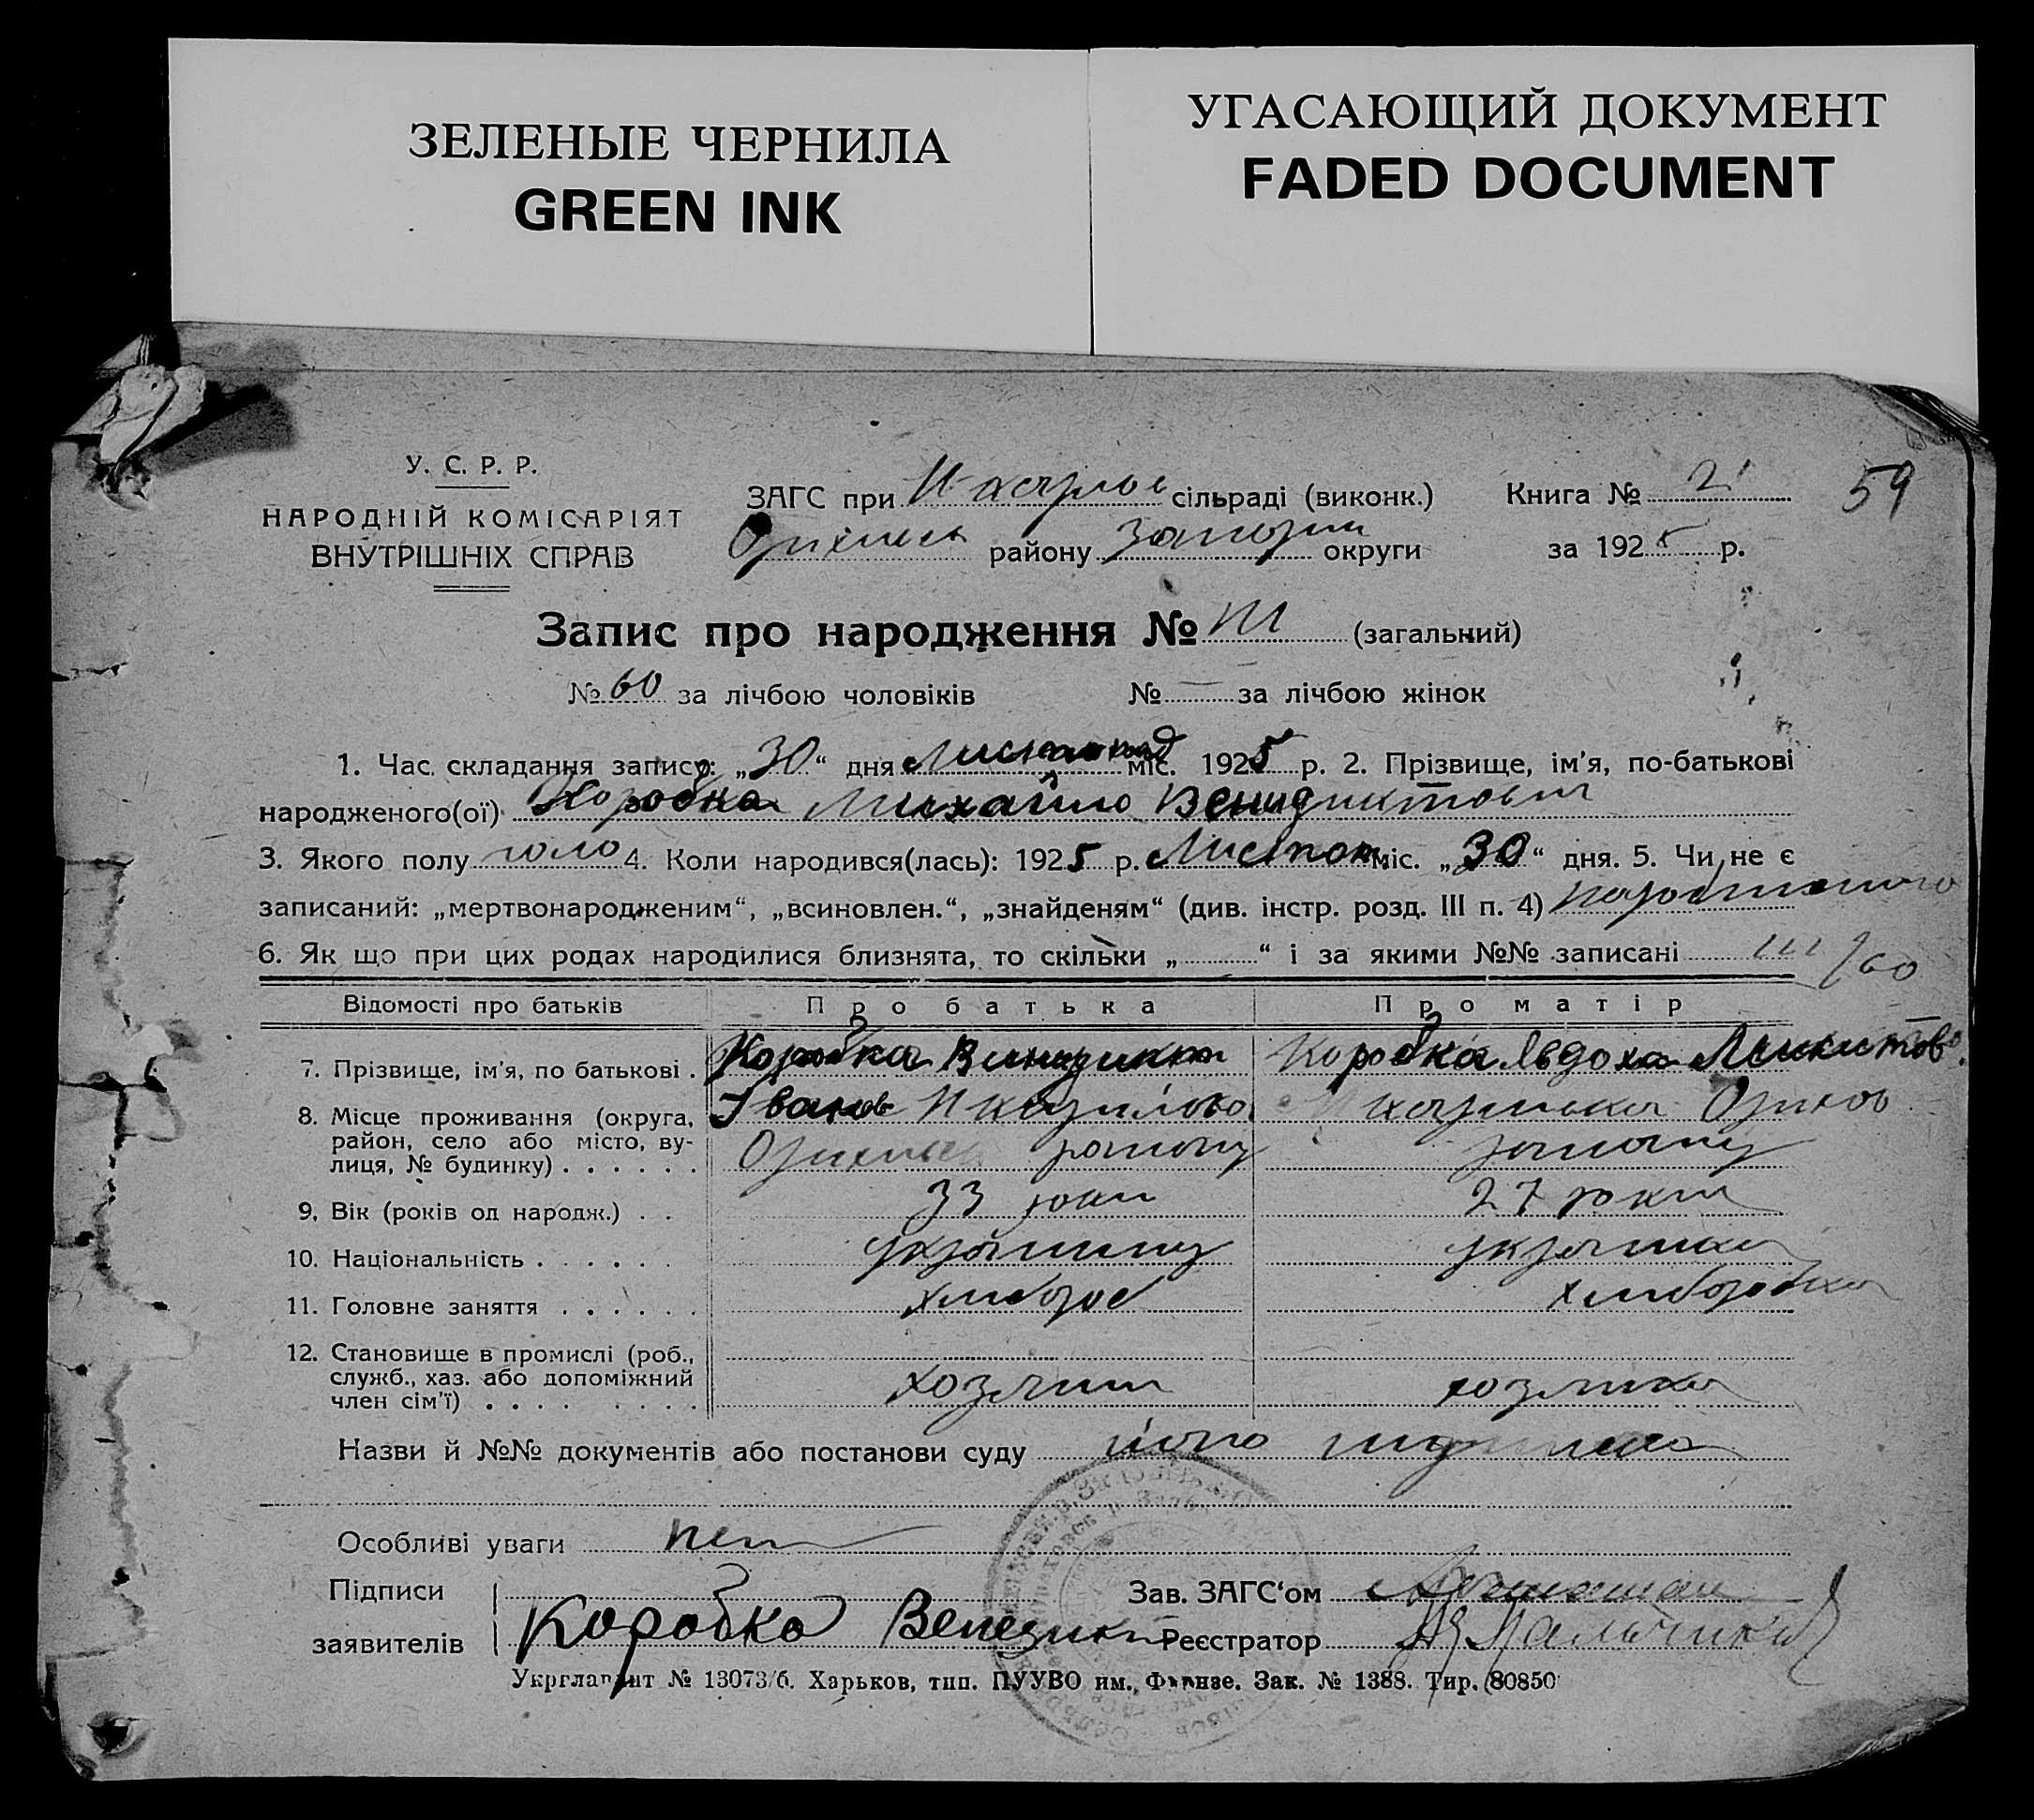 ЗЕЛЕНЫЕ ЧЕРНИЛА
GREEN INK
УГАСАЮЩИЙ ДОКУМЕНТ
FADED DOCUMENT
59
У. С. Р. Р.
НАРОДНІЙ КОМІСАРІЯТ
ВНУТРІШНІХ СПРАВ
ЗАГС при сільраді (виконк.)
району округи
Книга №
за 1925 р.
Запис про народження № (загальний)
№ 60 за лічбою чоловіків № — за лічбою жінок
1. Час складання запису: „30“ дня Листопад міс. 1925 р. 2. Прізвище, ім'я, по-батькові
народженого(ої) Коробка Михайло Венидиктович
3. Якого полу чоло 4. Коли народився(лась): 1925 р. Листоп. міс. „30“ дня. 5. Чи не є
записаний: „мертвонародженим“, „всиновлен.“, „знайденям“ (див. інстр. розд. III п. 4)
6. Як що при цих родах народилися близнята, то скільки „ “ і за якими №№ записані /60
Відомості про батьків Про батька Про матір
7. Прізвище, ім'я, по батькові . Коробка Винидикт Коробка Явдоха Микитов
8. Місце проживання (округа, Іванов
район, село або місто, ву- району району
лиця, № будинку) . . . . . .
9. Вік (років од народж.) . . 33 роки 27 роки
10. Національність . . . . . . українец українка
11. Головне заняття . . . . . . хлибороб хлиборобка
12. Становище в промислі (роб.,
служб., хаз. або допоміжний хозяин хозяйка
член сім'ї) . . . . . . . .
Назви й №№ документів або постанови суду
Особливі уваги нет
Підписи Зав. ЗАГС‘ом
заявителів Коробка Венедикт Реєстратор
Укрглавліт № 13073/б. Харьков, тип. ПУУВО им. Фрунзе. Зак. № 1388. Тир. 80850